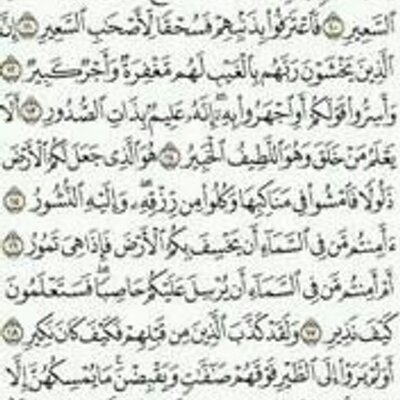 ٱلسَّعِيرِ ١٠ فَٱعْتَرَفُوا۟ بِذَنۢبِهِمْ فَسُحْقًا لِّأَصْحَٰبِ ٱلسَّعِيرِ ١١ إِنَّ
ٱلَّذِينَ يَخْشَوْنَ رَبَّهُم بِٱلْغَيْبِ لَهُم مَّغْفِرَةٌ وَأَجْرٌ كَبِيرٌ ١٢
وَأَسِرُّوا۟ قَوْلَكُمْ أَوِ ٱجْهَرُوا۟ بِهِۦٓ ۖ إِنَّهُۥ عَلِيمٌۢ بِذَاتِ ٱلصُّدُورِ ١٣ أَلَا
يَعْلَمُ مَنْ خَلَقَ وَهُوَ ٱللَّطِيفُ ٱلْخَبِيرُ ١٤ هُوَ ٱلَّذِى جَعَلَ لَكُمُ ٱلْأَرْضَ
ذَلُولًا فَٱمْشُوا۟ فِى مَنَاكِبِهَا وَكُلُوا۟ مِن رِّزْقِهِۦ ۖ وَإِلَيْهِ ٱلنُّشُورُ ١٥
ءَأَمِنتُم مَّن فِى ٱلسَّمَآءِ أَن يَخْسِفَ بِكُمُ ٱلْأَرْضَ فَإِذَا هِىَ تَمُورُ ١٦
أَمْ أَمِنتُم مَّن فِى ٱلسَّمَآءِ أَن يُرْسِلَ عَلَيْكُمْ حَاصِبًا ۖ فَسَتَعْلَمُونَ
كَيْفَ نَذِيرِ ١٧ وَلَقَدْ كَذَّبَ ٱلَّذِينَ مِن قَبْلِهِمْ فَكَيْفَ كَانَ نَكِيرِ ١٨
أَوَلَمْ يَرَوْا۟ إِلَى ٱلطَّيْرِ فَوْقَهُمْ صَٰٓفَّٰتٍ وَيَقْبِضْنَ ۚ مَا يُمْسِكُهُنَّ إِلَّا